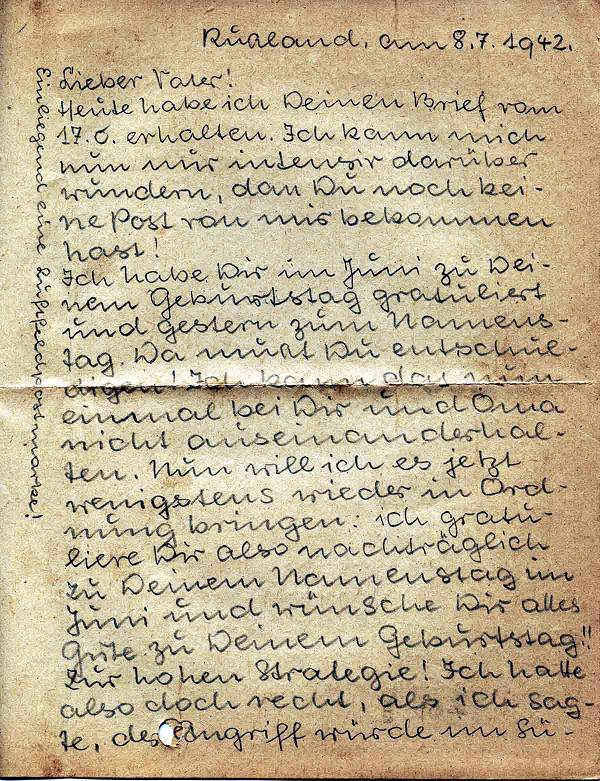 Rußland, am 8.7.1942.
Lieber Vater!
Heute habe ich Deinen Brief vom
17.6. erhalten. Ich kann mich
nun nur intensiv darüber
wundern, daß Du noch kei-
ne Post von mir bekommen
hast!
Ich habe Dir im Juni zu Dei-
nem Geburtstag gratuliert
und gestern zum Namens-
tag. Da mußt Du entschul-
digen! Ich kann das nun
einmal bei Dir und Oma
nicht auseinanderhal-
ten. Nun will ich es jetzt
wenigstens wieder in Ord-
nung bringen: ich gratu-
liere Dir also nachträglich
zu Deinem Namenstag im
Juni und wünsche Dir alles
Gute zu Deinem Geburtstag!!
Zur hohen Strategie! Ich hatte
also doch recht, als ich sag-
te, der Angriff würde im Sü-
Einliegend eine Luftfeldpostmarke!